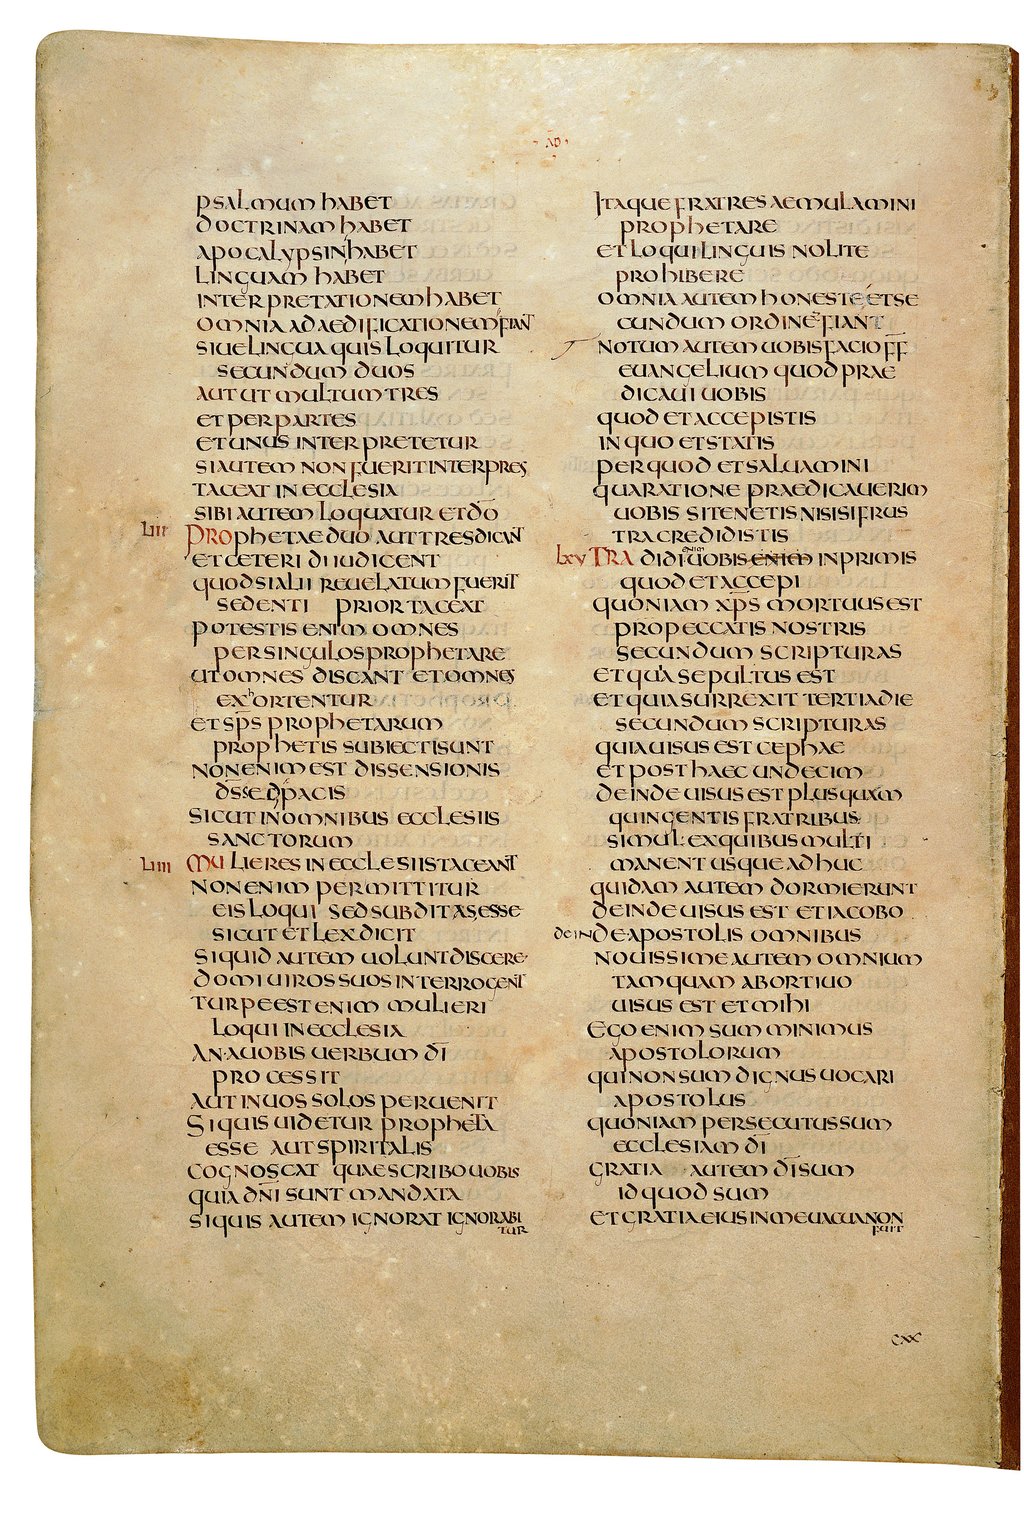 AD
PSALMUM HABET
DOCTRINAM HABET
APOCALYPSIN HABET
LINGUAM HABET
INTERPRETATIONEM HABET
OMNIA AD AEDIFICATIONEM FIANT
SIUE LINGUA QUIS LOQUITUR
SECUNDUM DUOS
AUT UT MULTUM TRES
ET PER PARTES
ET UNUS INTERPRETETUR
SI AUTEM NON FUERIT INTERPRES
TACEAT IN ECCLESIA
SIBI AUTEM LOQUATUR ET D̄O
LIII PROPHETAE DUO AUT TRES DICANT
ET CETERI DIIUDICENT
QUOD SI ALII REUELATUM FUERIT
SEDENTI PRIOR TACEAT
POTESTIS ENIM OMNES
PER SINGULOS PROPHETARE
UT OMNES DISCANT ET OMNES
EXHORTENTUR
ET SP̄S PROPHETARUM
PROPHETIS SUBIECTI SUNT
NON ENIM EST DISSENSIONIS
D̄S SED PACIS
SICUT IN OMNIBUS ECCLESIIS
SANCTORUM
LIIII MULIERES IN ECCLESIIS TACEANT
NON ENIM PERMITTITUR
EIS LOQUI SED SUBDITAS ESSE
SICUT ET LEX DICIT
SI QUID AUTEM UOLUNT DISCERE
DOMI UIROS SUOS INTERROGENT
TURPE EST ENIM MULIERI
LOQUI IN ECCLESIA
AN A UOBIS UERBUM D̄I
PROCESSIT
AUT IN UOS SOLOS PERUENIT
SI QUIS UIDETUR PROPHETA
ESSE AUT SPIRITALIS
COGNOSCAT QUAE SCRIBO UOBIS
QUIA D̄N̄I SUNT MANDATA
SI QUIS AUTEM IGNORAT IGNORABI
TUR
ITAQUE FRATRES AEMULAMINI
PROPHETARE
ET LOQUI LINGUIS NOLITE
PROHIBERE
OMNIA AUTEM HONESTE ET SE
CUNDUM ORDINĒ FIANT
NOTUM AUTEM UOBIS FACIO F̄F̄
EUANGELIUM QUOD PRAE
DICAUI UOBIS
QUOD ET ACCEPISTIS
IN QUO ET STATIS
PER QUOD ET SALUAMINI
QUA RATIONE PRAEDICAUERIM
UOBIS SI TENETIS NISI SI FRUS
TRA CREDIDISTIS
LXV TRADIDI ENIM UOBIS ENIM IN PRIMIS
QUOD ET ACCEPI
QUONIAM XP̄S MORTUUS EST
PRO PECCATIS NOSTRIS
SECUNDUM SCRIPTURAS
ET QUIA SEPULTUS EST
ET QUIA SURREXIT TERTIA DIE
SECUNDUM SCRIPTURAS
QUIA UISUS EST CEPHAE
ET POST HAEC UNDECIM
DEINDE UISUS EST PLUS QUAM
QUINGENTIS FRATRIBUS
SIMUL EX QUIBUS MULTI
MANENT USQUE ADHUC
QUIDAM AUTEM DORMIERUNT
DEINDE UISUS EST ET IACOBO
DEINDE APOSTOLIS OMNIBUS
NOUISSIME AUTEM OMNIUM
TAMQUAM ABORTIUO
UISUS EST ET MIHI
EGO ENIM SUM MINIMUS
APOSTOLORUM
QUI NON SUM DIGNUS UOCARI
APOSTOLUS
QUONIAM PERSECUTUS SUM
ECCLESIAM D̄I
GRATIA AUTEM D̄I SUM
ID QUOD SUM
ET GRATIA EIUS IN ME UACUA NON
FUIT
CXX